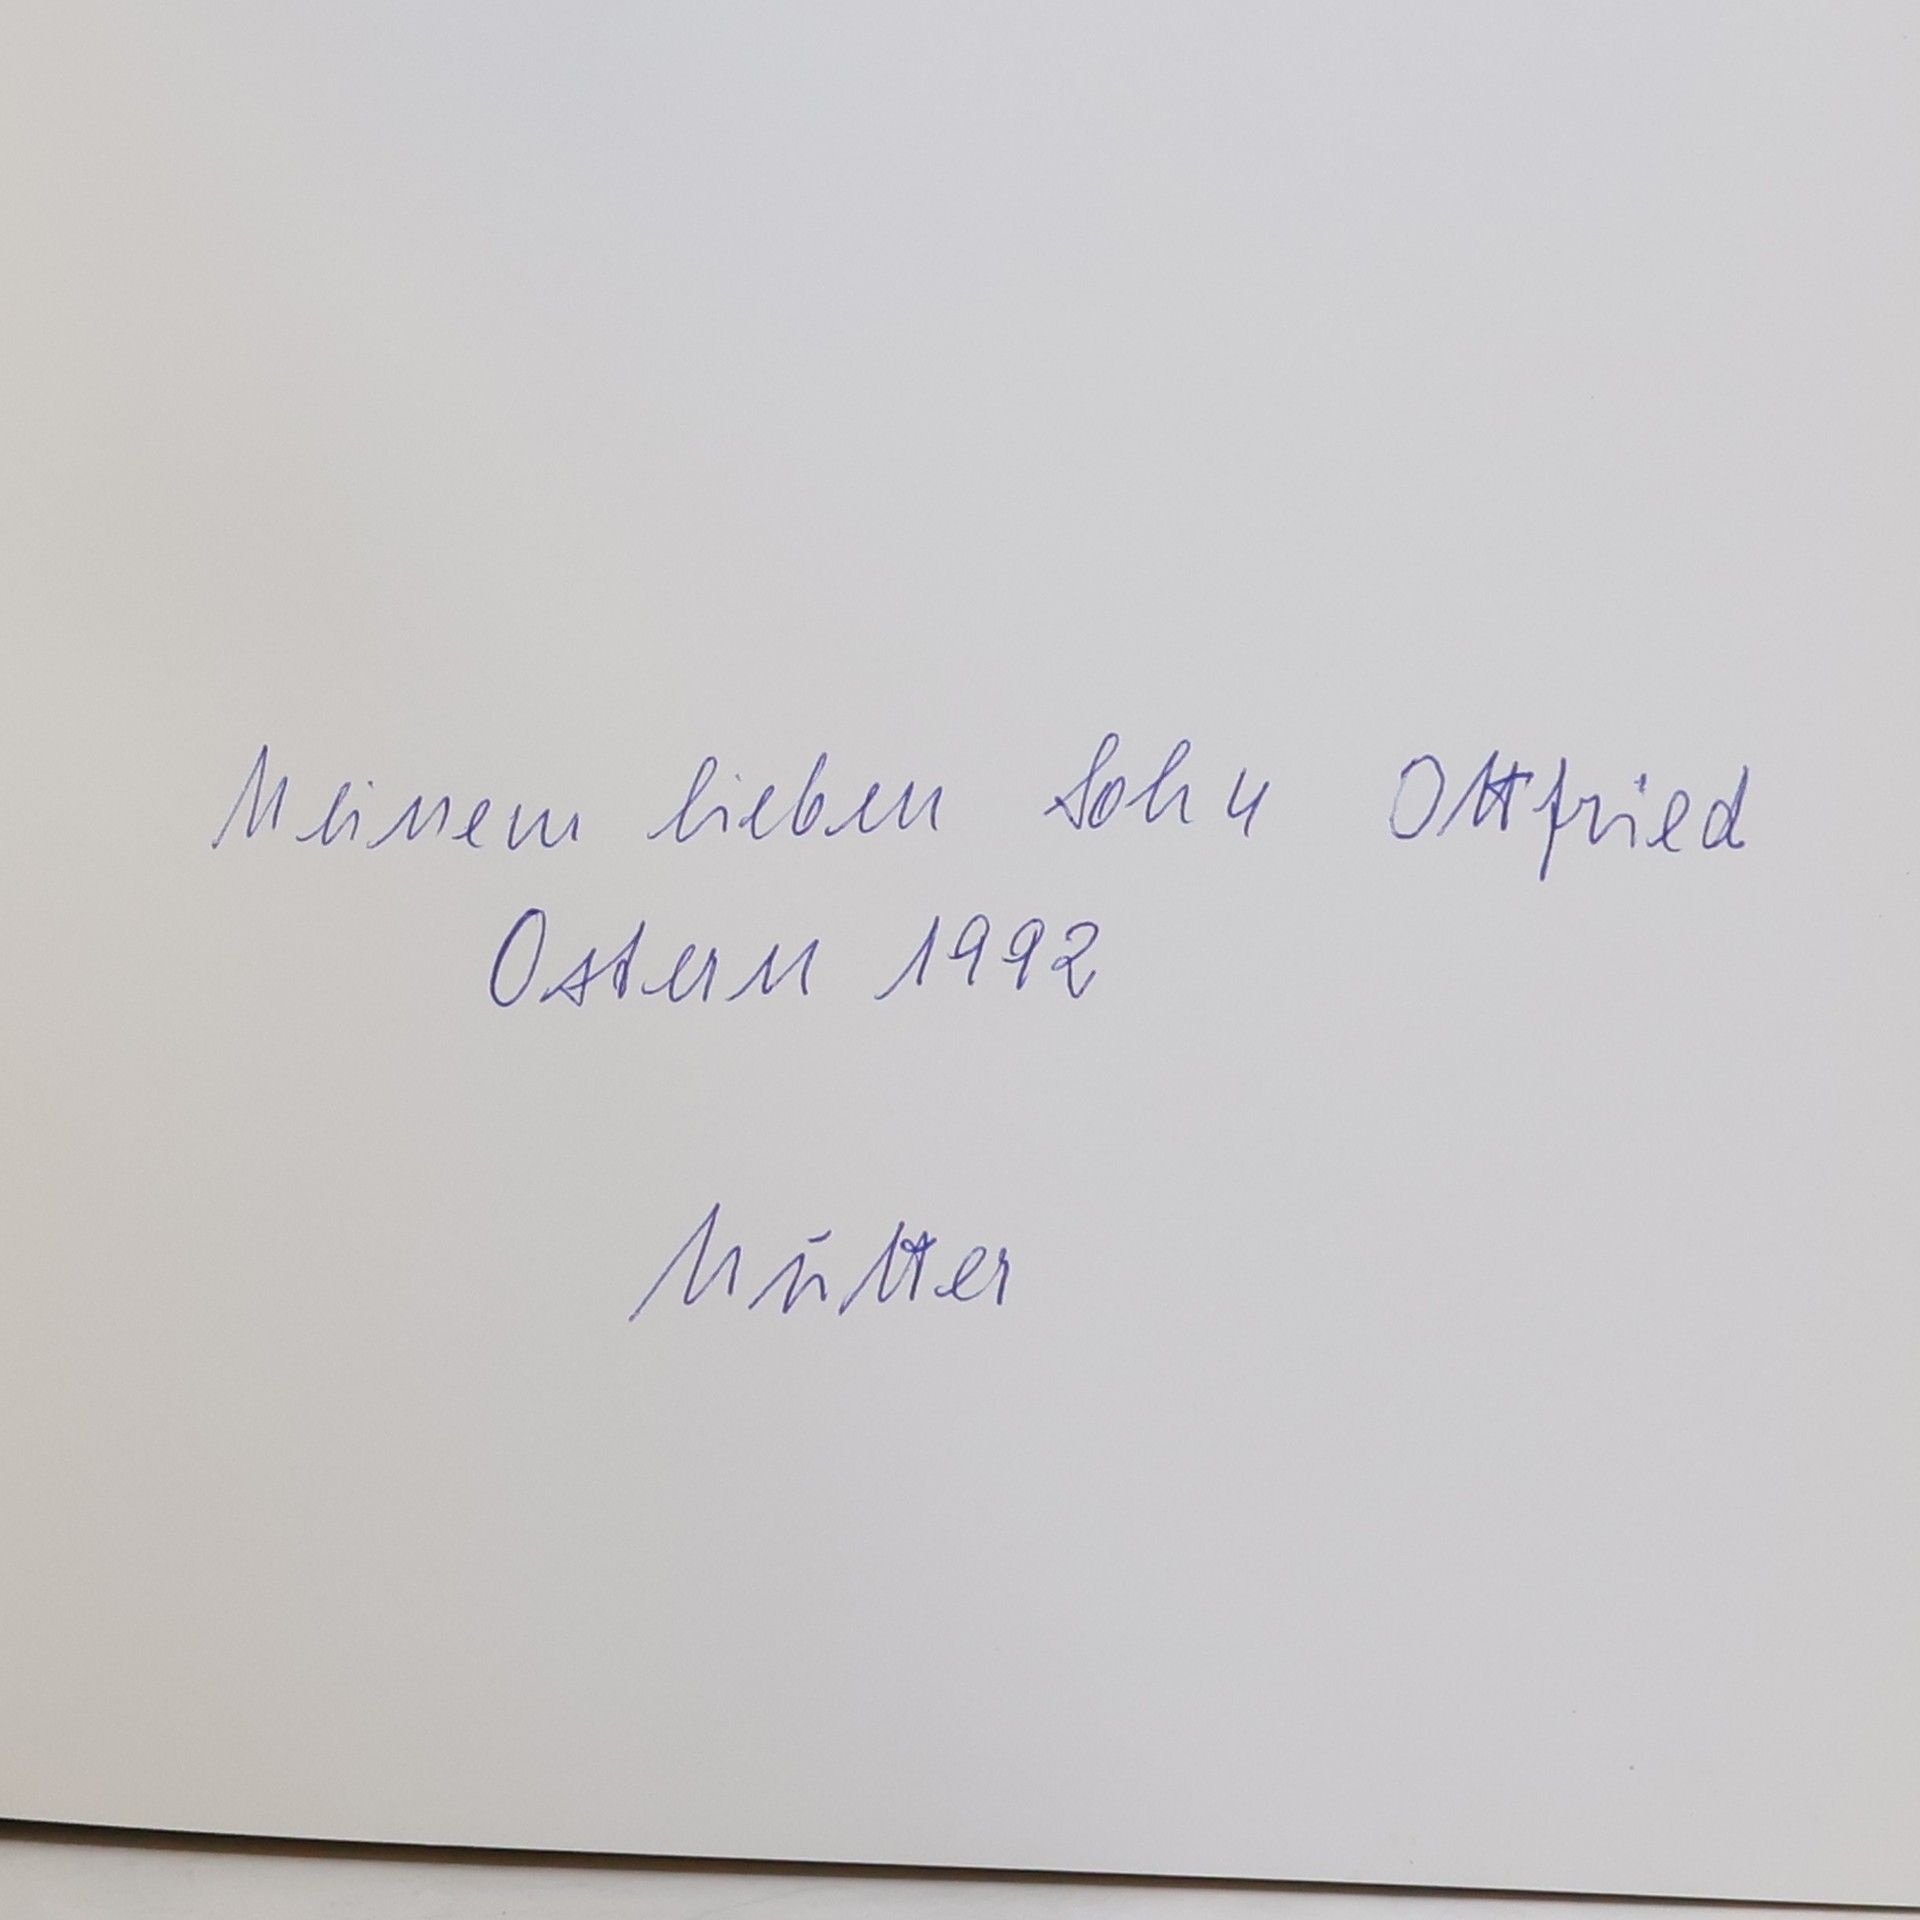 Meinem lieben Sohn Ottfried
Ostern 1992
Mutter